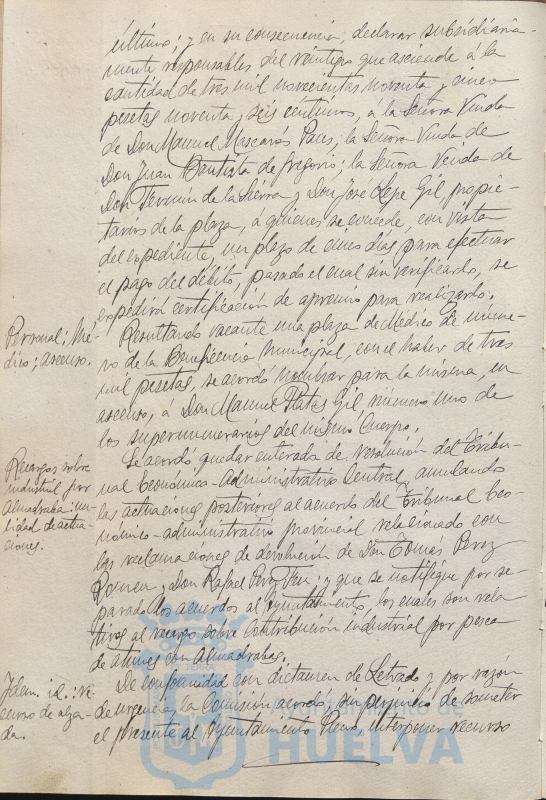 último; y en su consecuencia, declarar subsidiaria-
mente responsables del reintegro que asciende á la
cantidad de tres mil novecientas noventa y cinco
pesetas noventa y seis céntimos, á la Señora Viuda
de Don Manuel Mascarós Paus, la Señora Viuda de
Don Juan Bautista de Gregorio; la Señora Viuda de
Don Fermín de la Sierra y Don José Lepe Gil, propie-
tarios de la plaza, á quienes se concede, con vista
del expediente, un plazo de cinco días para efectuar
el pago del débito, pasado el cual sin verificarlo, se
expedirá certificación de apremio para realizarlo.
Personal: Mé-
dico; ascenso.
Resultando vacante una plaza de Médico de núme-
ro de la Beneficencia Municipal, con el haber de tres
mil pesetas, se acordó nombrar para la misma, en
ascenso, á Don Manuel Platas Gil, número uno de
los supernumerarios del mismo Cuerpo.
Recargos sobre
industrial por
Almadraba: nu-
lidad de actua-
ciones.
Se acordó quedar enterada de resolución del Tribu-
nal Económico-Administrativo Central, anulando
las actuaciones posteriores al acuerdo del Tribunal Eco-
nómico-administrativo provincial relacionado con
las reclamaciones de devolución de Don Tomás Perez
Romeu y Don Rafael Perez; y que se notifique por se-
parado los acuerdos al Ayuntamiento, los cuales son rela-
tivos al recargo sobre Contribución industrial por pesca
de atunes con Almadrabas.
Idem. id.: re-
curso de alza-
da.
De conformidad con dictamen de Letrado y por razón
de urgencia, la Comisión acordó, sin perjuicio de someter
el presente al Ayuntamiento Pleno, interponer recurso
HUELVA